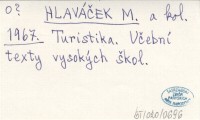 O? HLAVÁČEK M. a kol.
1967. Turistika. Učební
texty vysokých škol.